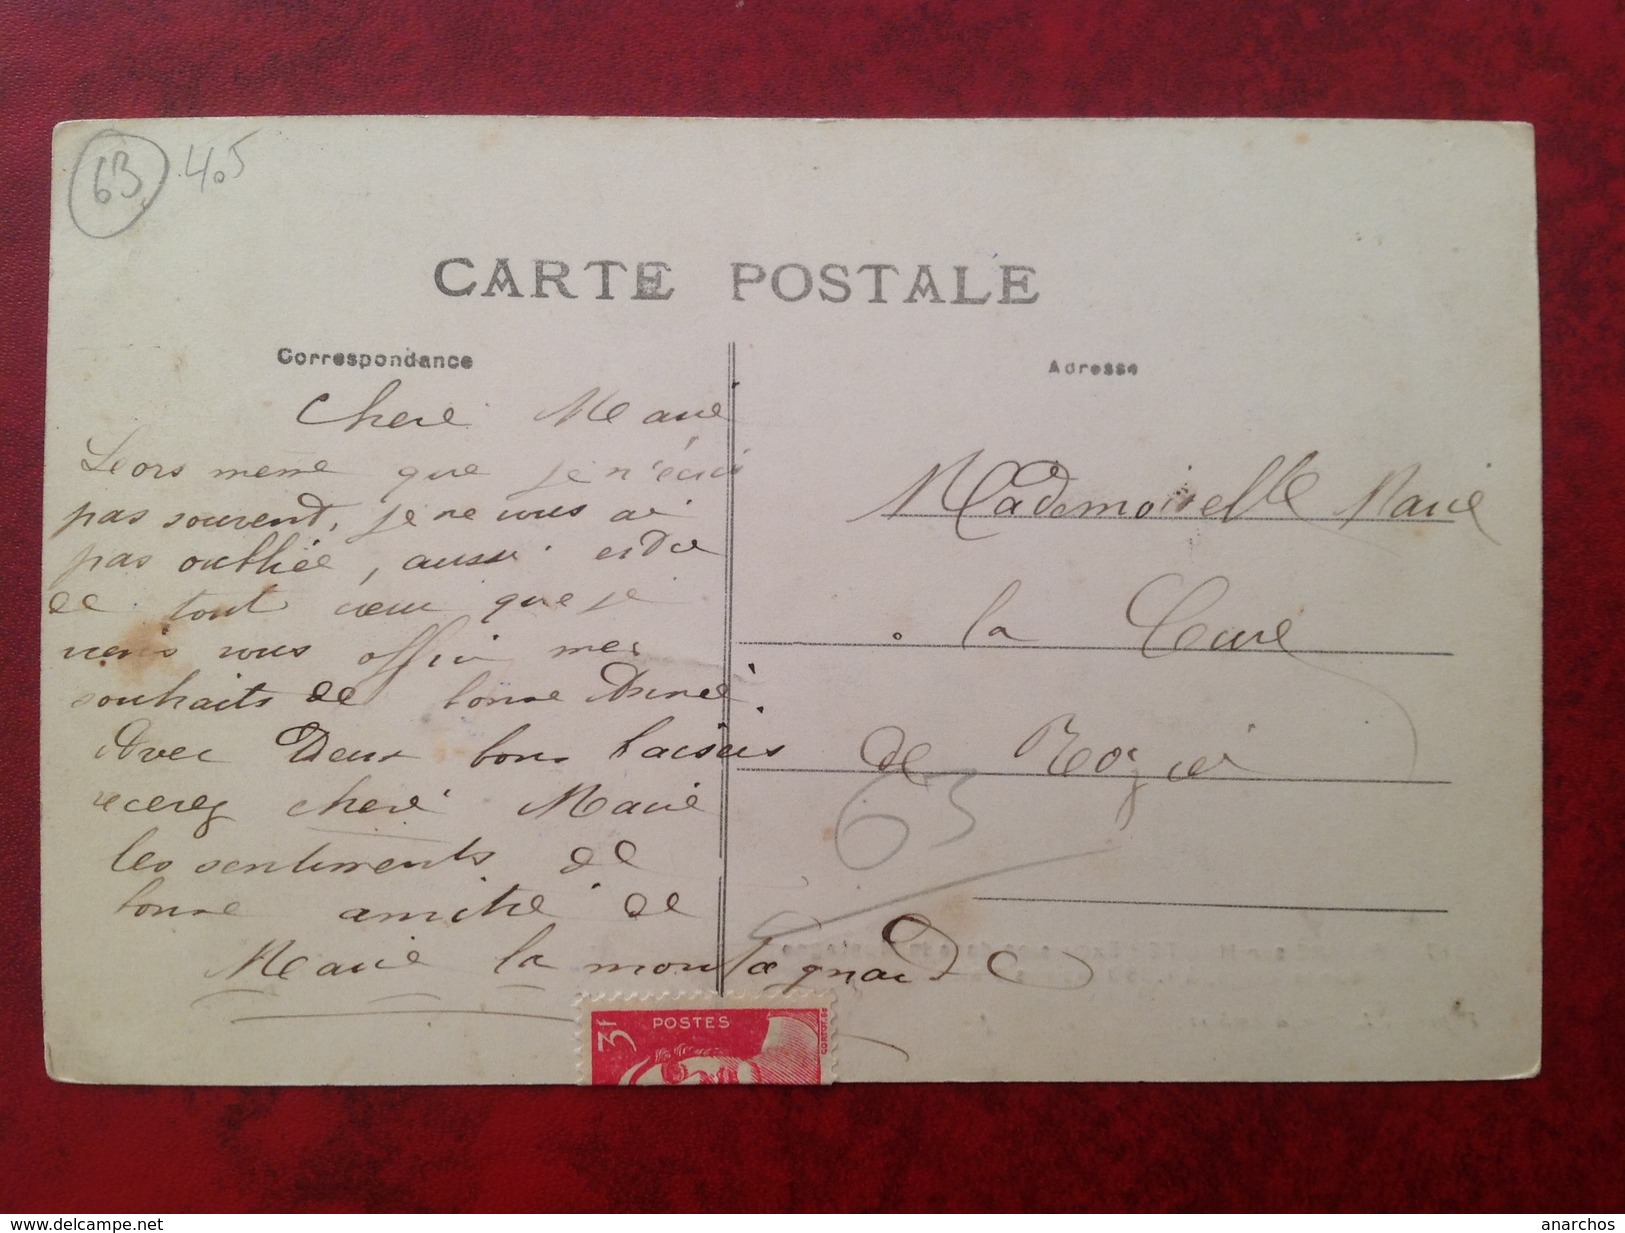 63 4.5
CARTE POSTALE
Correspondance
Adresse
Chere Marie
Leors meme que je n'écris
pas souvent, je ne vous ai
pas oubliée, aussi
de tout cœur que je
viens vous offrir mes
souhaits de bonne Année.
Avec Deux bons baisers
recevez chere Marie
les sentiments de
bonne amitié de
Marie la montagnarde
Mademoiselle Marie
a la Cure
de Rozier
63
3F POSTES
www.delcampe.net
anarchos